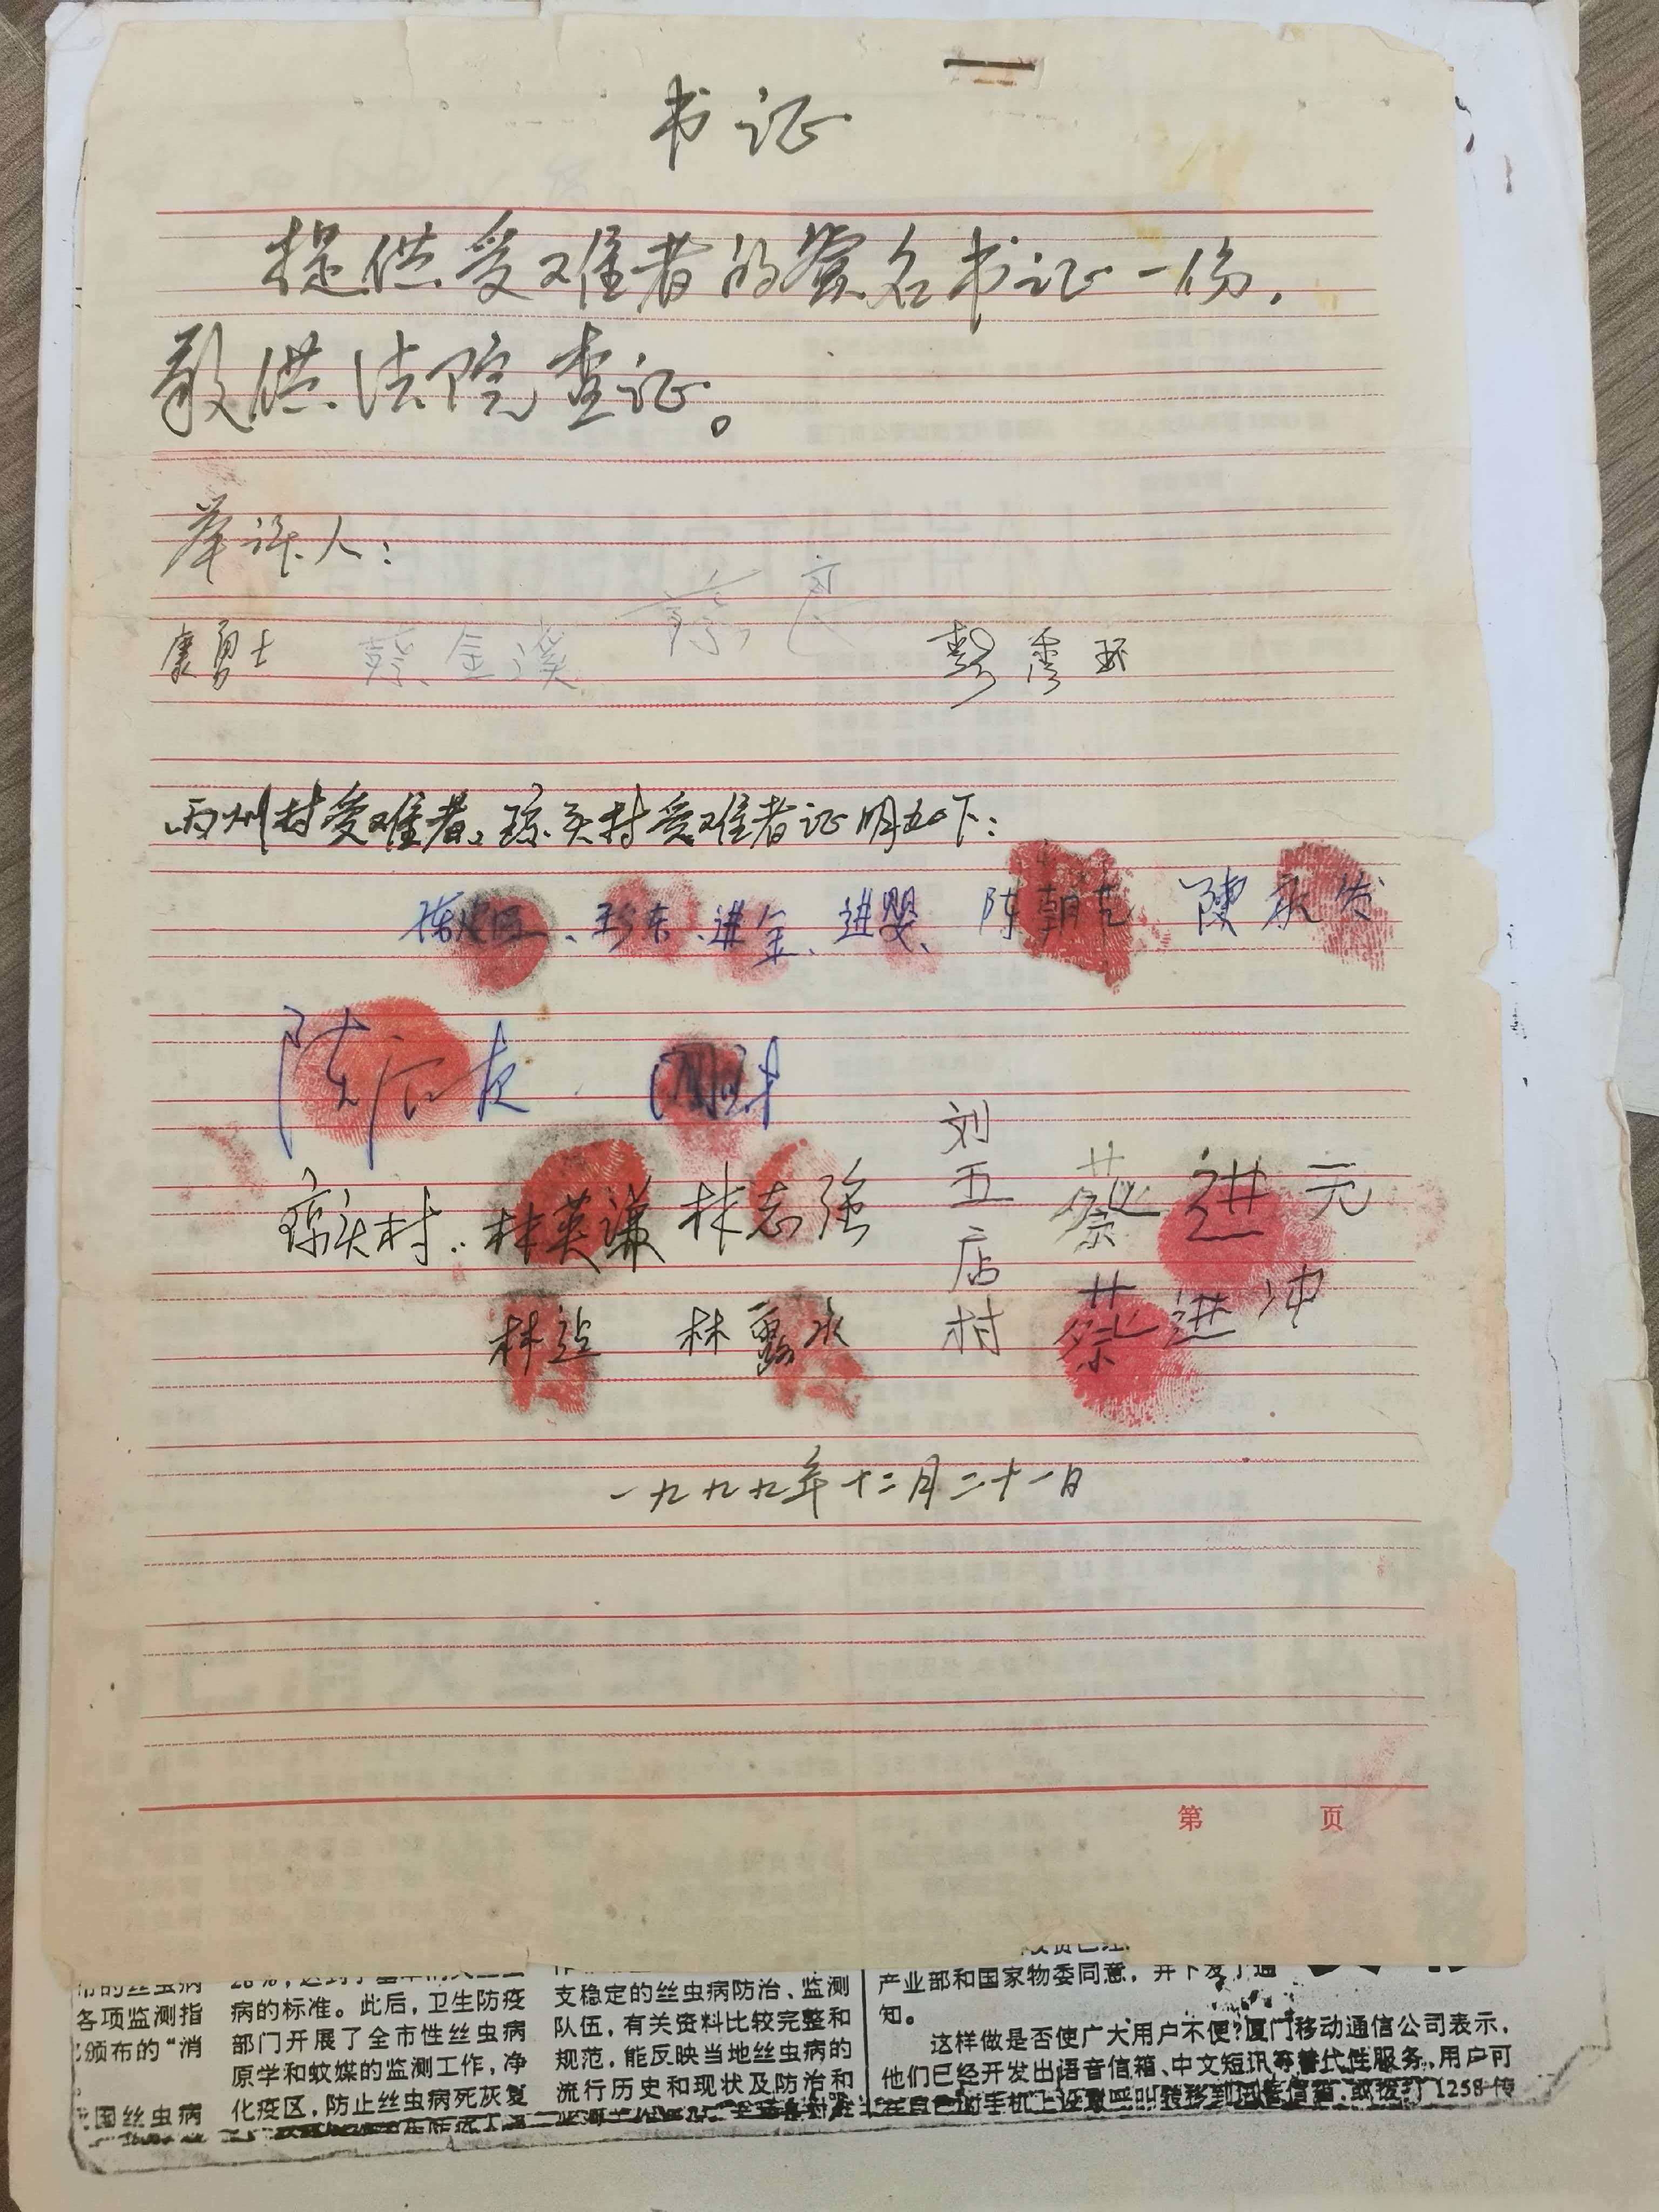 书证
提供受难者的签名书证一份，
敬供法院查证。
举证人：
康勇士 蔡金溪 蔡良 彭秀环
丙州村受难者、琼头村受难者证明如下：
珍东、进金、进婴、陈朝 陳
陈
琼头村：林英谦 林志强
刘五店村 蔡进元
林 林露水 蔡进冲
一九九九年十二月二十一日
第 页
市的丝虫病
各项监测指
颁布的“消
国丝虫病
病的标准。此后，卫生防疫
部门开展了全市性丝虫病
原学和蚊媒的监测工作，净
化疫区，防止丝虫病死灰复
支稳定的丝虫病防治、监测
队伍，有关资料比较完整和
规范，能反映当地丝虫病的
流行历史和现状及防治和
产业部和国家物委同意，并下发了通
知。
这样做是否使广大用户不便？厦门移动通信公司表示，
他们已经开发出语音信箱、中文短讯等替代性服务，用户可
在自己的手机上设置呼叫转移到语音信箱，或拨打1258传